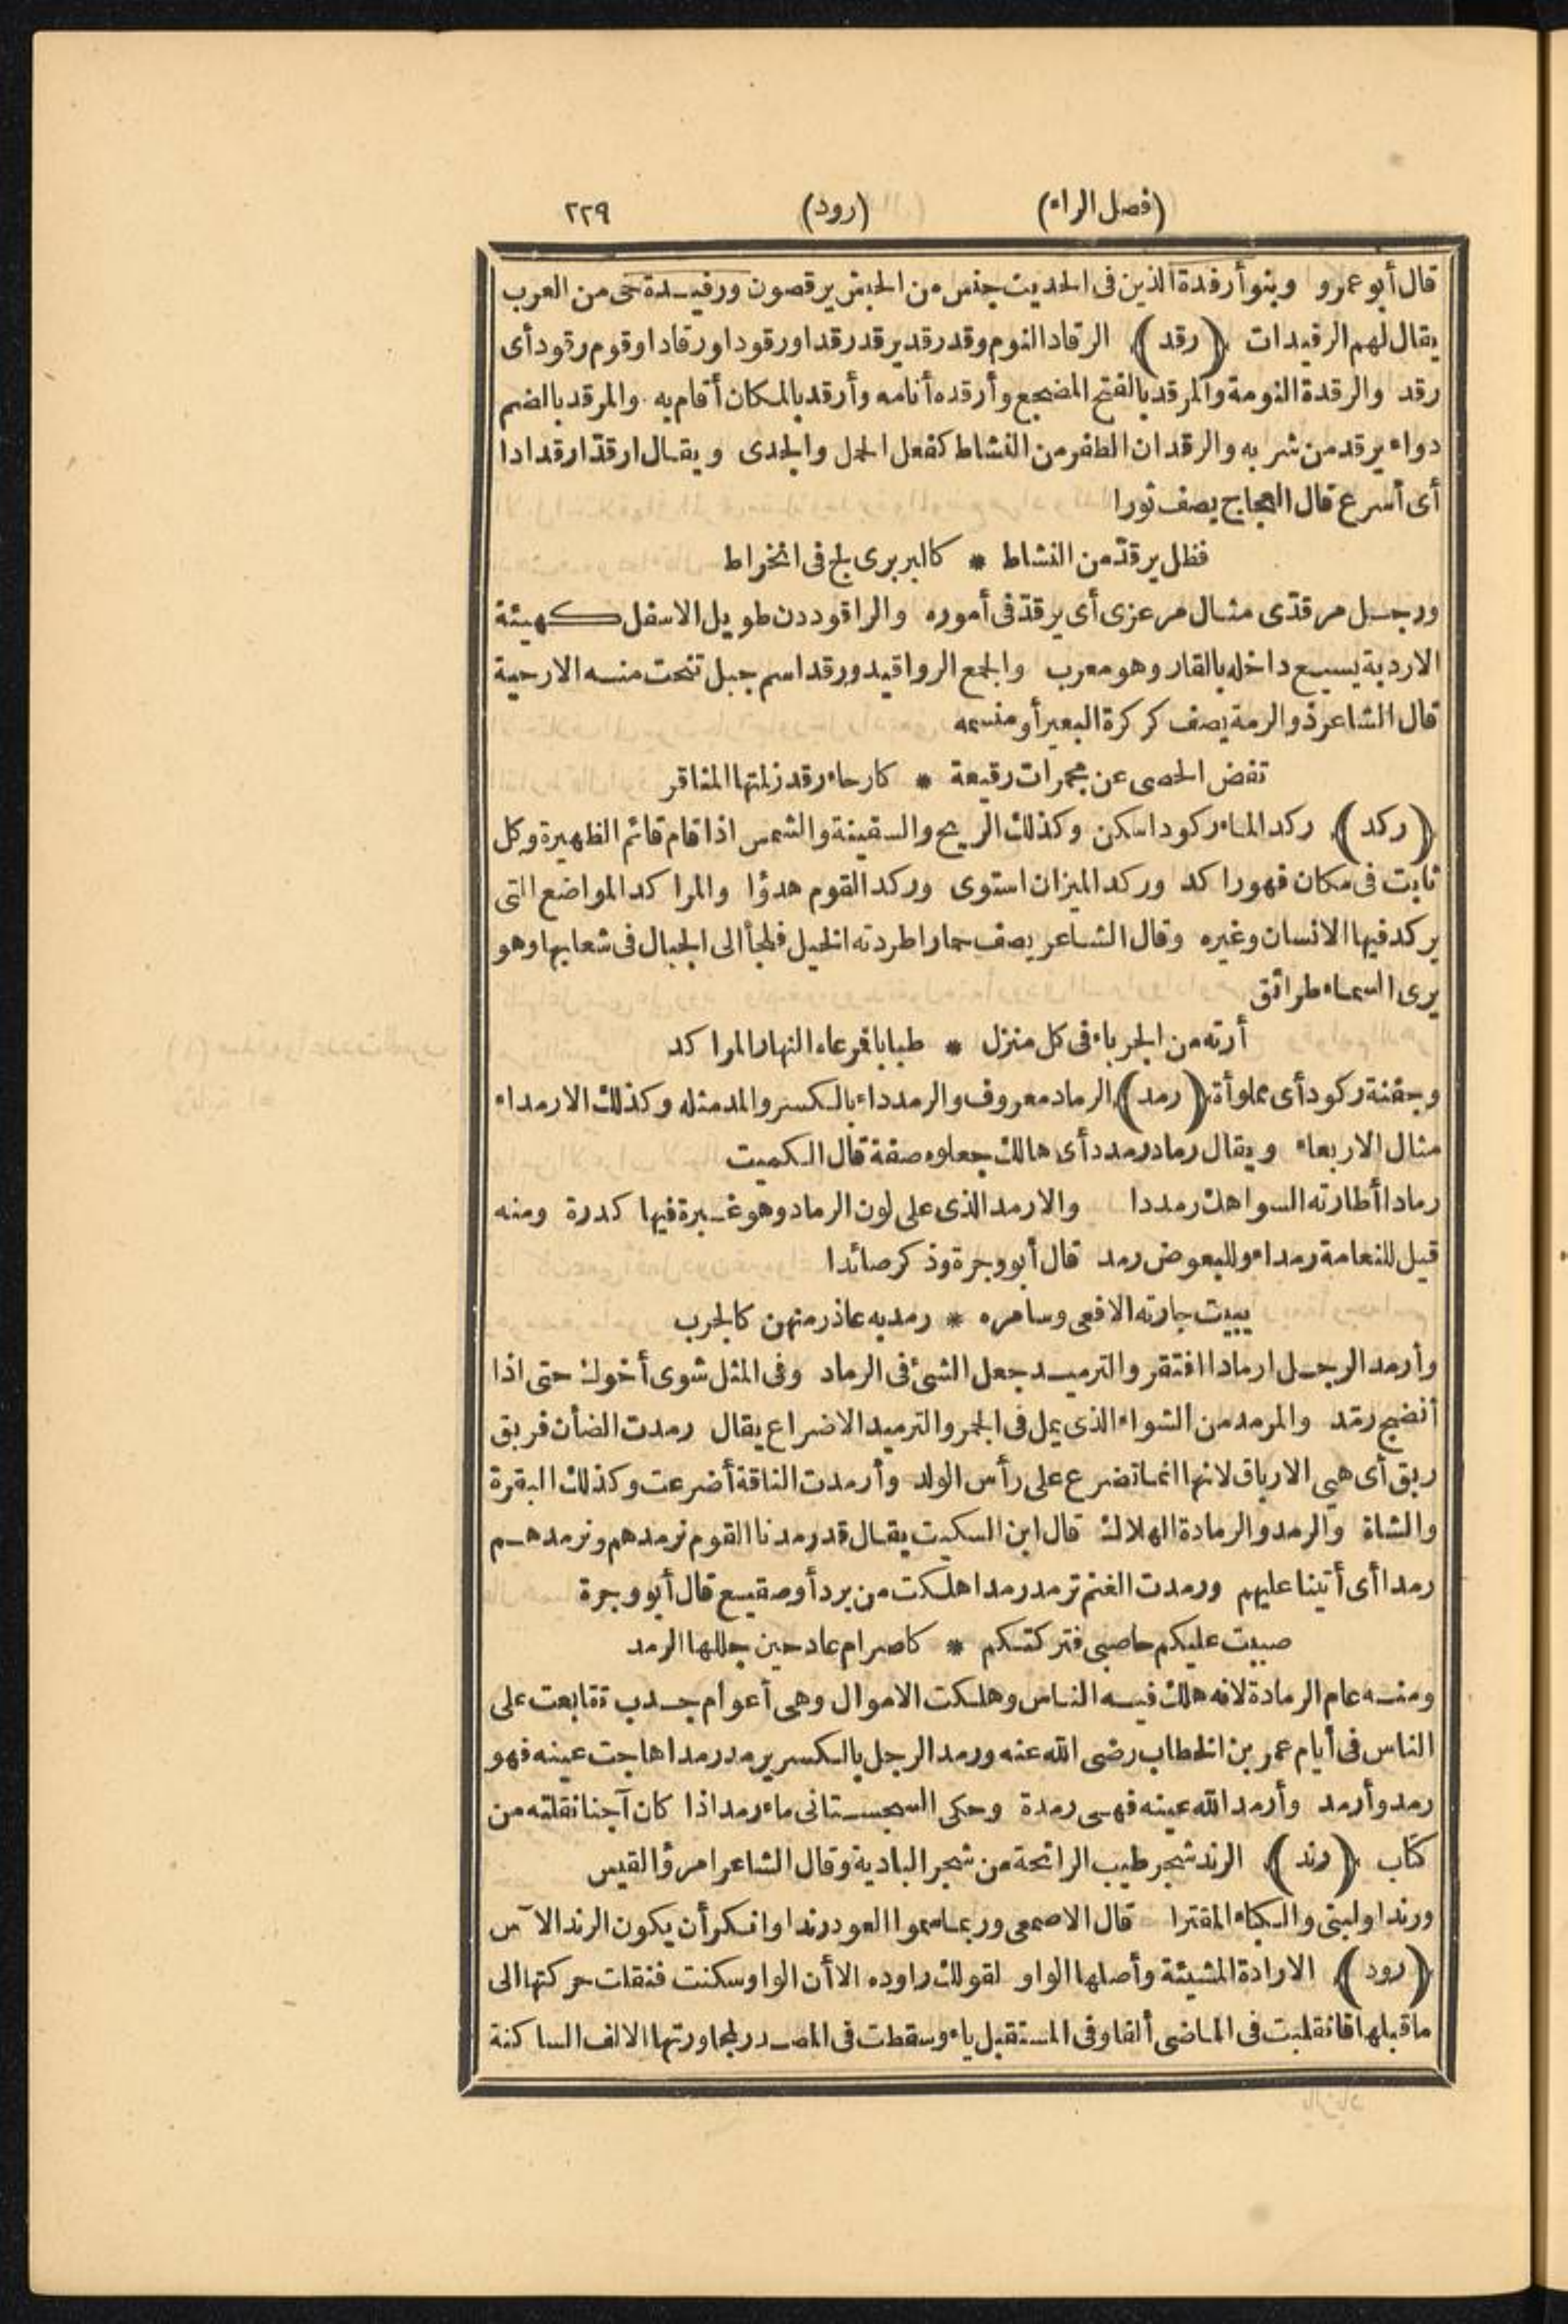 (فصل الراء) (رود) ٢٢٩
قال أبو عمرو وبنو أرفدة الذين فى الحديث جنس من الحبش يرقصون ورفيدة حى من العرب
يقال لهم الرفيدات (رقد) الرقاد النوم وقد رقد يرقد رقدا ورقودا ورقادا وقوم رقود أى
رقد والرقدة النومة والمرقد بالفتح المضجع وأرقده أنامه وأرقد بالمكان أقام به والمرقد بالضم
دواء يرقد من شربه والرقدان الطفر من النشاط كفعل الحمل والجدى ويقال ارقدّ ارقدادا
أى أسرع قال العجاج يصف ثورا
فظل يرقدّ من النشاط * كالبربرى لج فى انخراط
ورجل مرقدّى مثال مرعزى أى يرقدّ فى أموره والراقود دن طويل الاسفل كهيئة
الاردبة يسيع داخله بالقار وهو معرب والجمع الرواقيد ورقد اسم جبل تنحت منه الارحية
قال الشاعر ذو الرمة يصف كركرة البعير أو منسمه
تفض الحصى عن مجمرات رقيعة * كارحاء رقد زلمتها المناقر
(ركد) ركد الماء ركودا سكن وكذلك الريح والسفينة والشمس اذا قام قائم الظهيرة وكل
ثابت فى مكان فهو راكد وركد الميزان استوى وركد القوم هدؤا والمراكد المواضع التى
يركد فيها الانسان وغيره وقال الشاعر يصف حمارا طردته الخيل فلجأ الى الجبال فى شعابها وهو
يرى السماء طرائق
أرته من الجرباء فى كل منزل * طبابا فمرعاه النهار المراكد
وجفنة ركود أى مملوأة (رمد) الرماد معروف والرمدداء بالكسر والمد مثله وكذلك الارمداء
مثال الاربعاء ويقال رماد رمدد أى هالك جعلوه صفة قال الكميت
رمادا أطارته السواهك رمددا والارمد الذى على لون الرماد وهو غبرة فيها كدرة ومنه
قيل للنعامة رمداء وللبعوض رمد قال أبو وجرة وذكر صائدا
يبيت جارته الافعى وسامره * رمد به عاذر منهن كالجرب
وأرمد الرجل ارمادا افتقر والترميد جعل الشئ فى الرماد وفى المثل شوى أخوك حتى اذا
أنضج رمّد والمرمد من الشواء الذى يمل فى الجمر والترميد الاضراع يقال رمدت الضأن فربق
ربق أى هيى الارباق لانها انما تضرع على رأس الولد وأرمدت الناقة أضرعت وكذلك البقرة
والشاة والرمد والرمادة الهلاك قال ابن السكيت يقال قد رمدنا القوم نرمدهم ونرمدهم
رمدا أى أتينا عليهم ورمدت الغنم ترمد رمدا هلكت من برد أو صقيع قال أبو وجرة
صببت عليكم حاصبى فتركتكم * كاصرام عاد حين جللها الرمد
ومنه عام الرمادة لانه هلك فيه الناس وهلكت الاموال وهى أعوام جدب تتابعت على
الناس فى أيام عمر بن الخطاب رضى الله عنه ورمد الرجل بالكسر يرمد رمدا هاجت عينه فهو
رمد وأرمد وأرمد الله عينه فهى رمدة وحكى السجستانى ماء رمد اذا كان آجنا نقلته من
كتاب (رند) الرند شجر طيب الرائحة من شجر البادية وقال الشاعر امرؤ القيس
ورندا ولبنى والكباء المقترا قال الاصمعى وربما سموا العود رندا وانكر أن يكون الرند الآس
(رود) الارادة المشيئة وأصلها الواو لقولك راوده الا أن الواو سكنت فنقلت حركتها الى
ما قبلها فانقلبت فى الماضى ألفا وفى المستقبل ياء وسقطت فى المصدر لمجاورتها الالف الساكنة